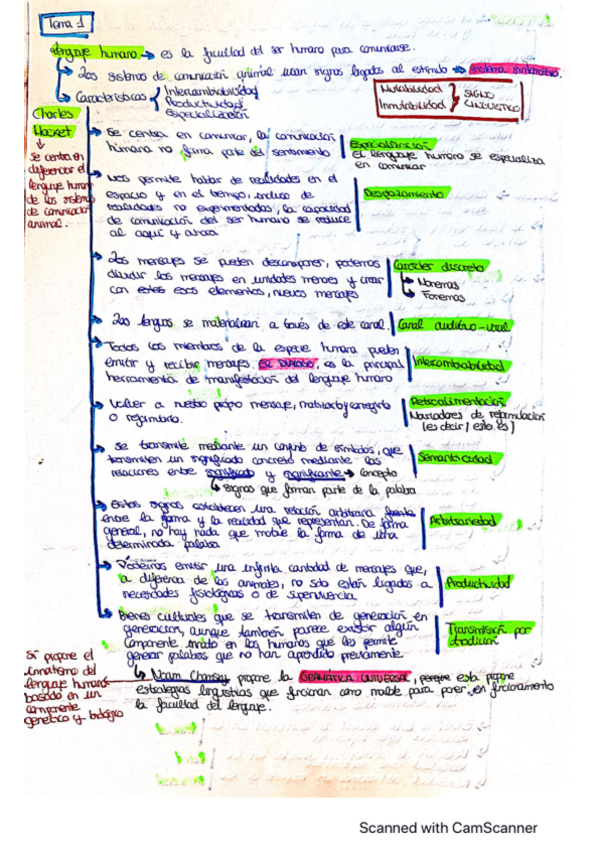 Tema 1
Lenguaje humano → es la facultad del ser humano para comunicarse.
Los sistemas de comunicación animal usan signos ligados al estímulo →
Características
Intercambiabilidad
Productividad
Especialización
Mutabilidad
Inmutabilidad
SIGNO
LINGÜÍSTICO
Charles
Hocket
Se centra en
diferenciar el
lenguaje humano
de los sistemas
de comunicación
animal.
Se centra en comunicar, la comunicación
humana no forma parte del sentimiento
Especialización
El lenguaje humano se especializa
en comunicar
Nos permite hablar de realidades en el
espacio y en el tiempo, incluso de
realidades no experimentadas, la capacidad
de comunicación del ser humano se reduce
al aquí y ahora
Desplazamiento
Los mensajes se pueden descomponer, podemos
dividir los mensajes en unidades menores y crear
con estos esos elementos, nuevos mensajes
Carácter discreto
Monemas
Fonemas
Las lenguas se materializan a través de este canal.
Canal auditivo-vocal
Todos los miembros de la especie humana pueden
emitir y recibir mensajes. El diálogo, es la principal
herramienta de manifestación del lenguaje humano
Intercambiabilidad
Volver a nuestro propio mensaje, matizarlo y corregirlo
o reformularlo.
Retroalimentación
Marcadores de reformulación
(es decir / esto es)
Se transmite mediante un conjunto de símbolos, que
transmiten un significado concreto mediante las
relaciones entre significado y significante → Concepto
signos que forman parte de la palabra
Semanticidad
Estos signos establecen una relación arbitraria frente
entre la forma y la realidad que representan. De forma
general, no hay nada que motive la forma de una
determinada palabra
Arbitrariedad
Podemos emitir una infinita cantidad de mensajes que,
a diferencia de los animales, no solo están ligados a
necesidades fisiológicas o de supervivencia.
Productividad
Bienes culturales que se transmiten de generación en
generación, aunque también parece existir algún
componente innato en los humanos que les permite
generar palabras que no han aprendido previamente
Transmisión por
tradición
Noam Chomsky propone la GRAMÁTICA UNIVERSAL, porque esta propone
estrategias lingüísticas que funcionan como molde para poner en funcionamiento
la facultad del lenguaje.
Sí propone el
innatismo del
lenguaje humano
basado en un
componente
genético y biológico
Scanned with CamScanner